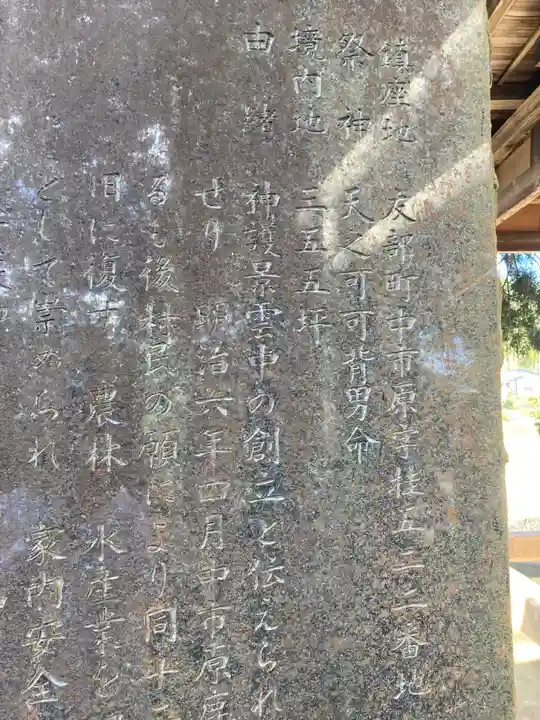 鎮座地 友部町中市原字桂五三二番地
祭神 天之可可背男命
境内地 三五五坪
由緒 神護景雲中の創立と伝えられ
せり 明治六年四月中市原
るも後村民の願により同十
旧に復す 農林 水産業を
として崇められ 家内安全